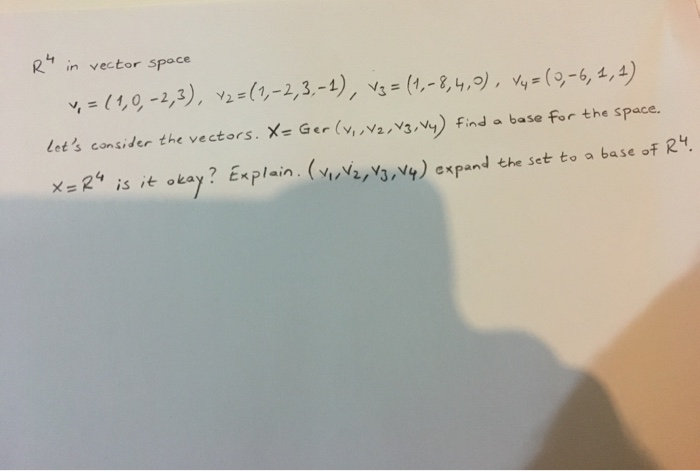 R⁴ in vector space
v₁ = (1,0,-2,3), v₂ = (1,-2,3,-1), v₃ = (1,-8,4,0), v₄ = (0,-6,1,1)
let's consider the vectors. X = Ger (v₁,v₂,v₃,v₄) find a base for the space.
X = R⁴ is it okay? Explain. (v₁,v₂,v₃,v₄) expand the set to a base of R⁴.